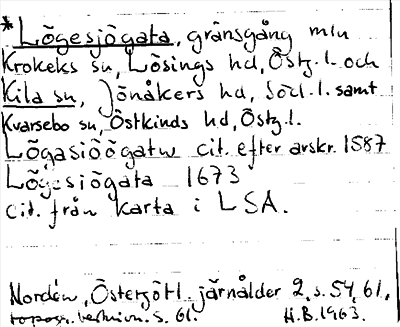 *Lögesjögata, gränsgång mln
Krokeks sn, Lösings hd, Östg. l. och
Kila sn, Jönåkers hd, Södl. l. samt
Kvarsebo sn, Östkinds hd, Östg. l.
Lögasiöögatw cit. efter avskr. 1587
Lögesiögata 1673
cit. från karta i LSA.
Nordén, Östergötl. järnålder 2, s. 54, 61.
s. 61. H.B. 1963.